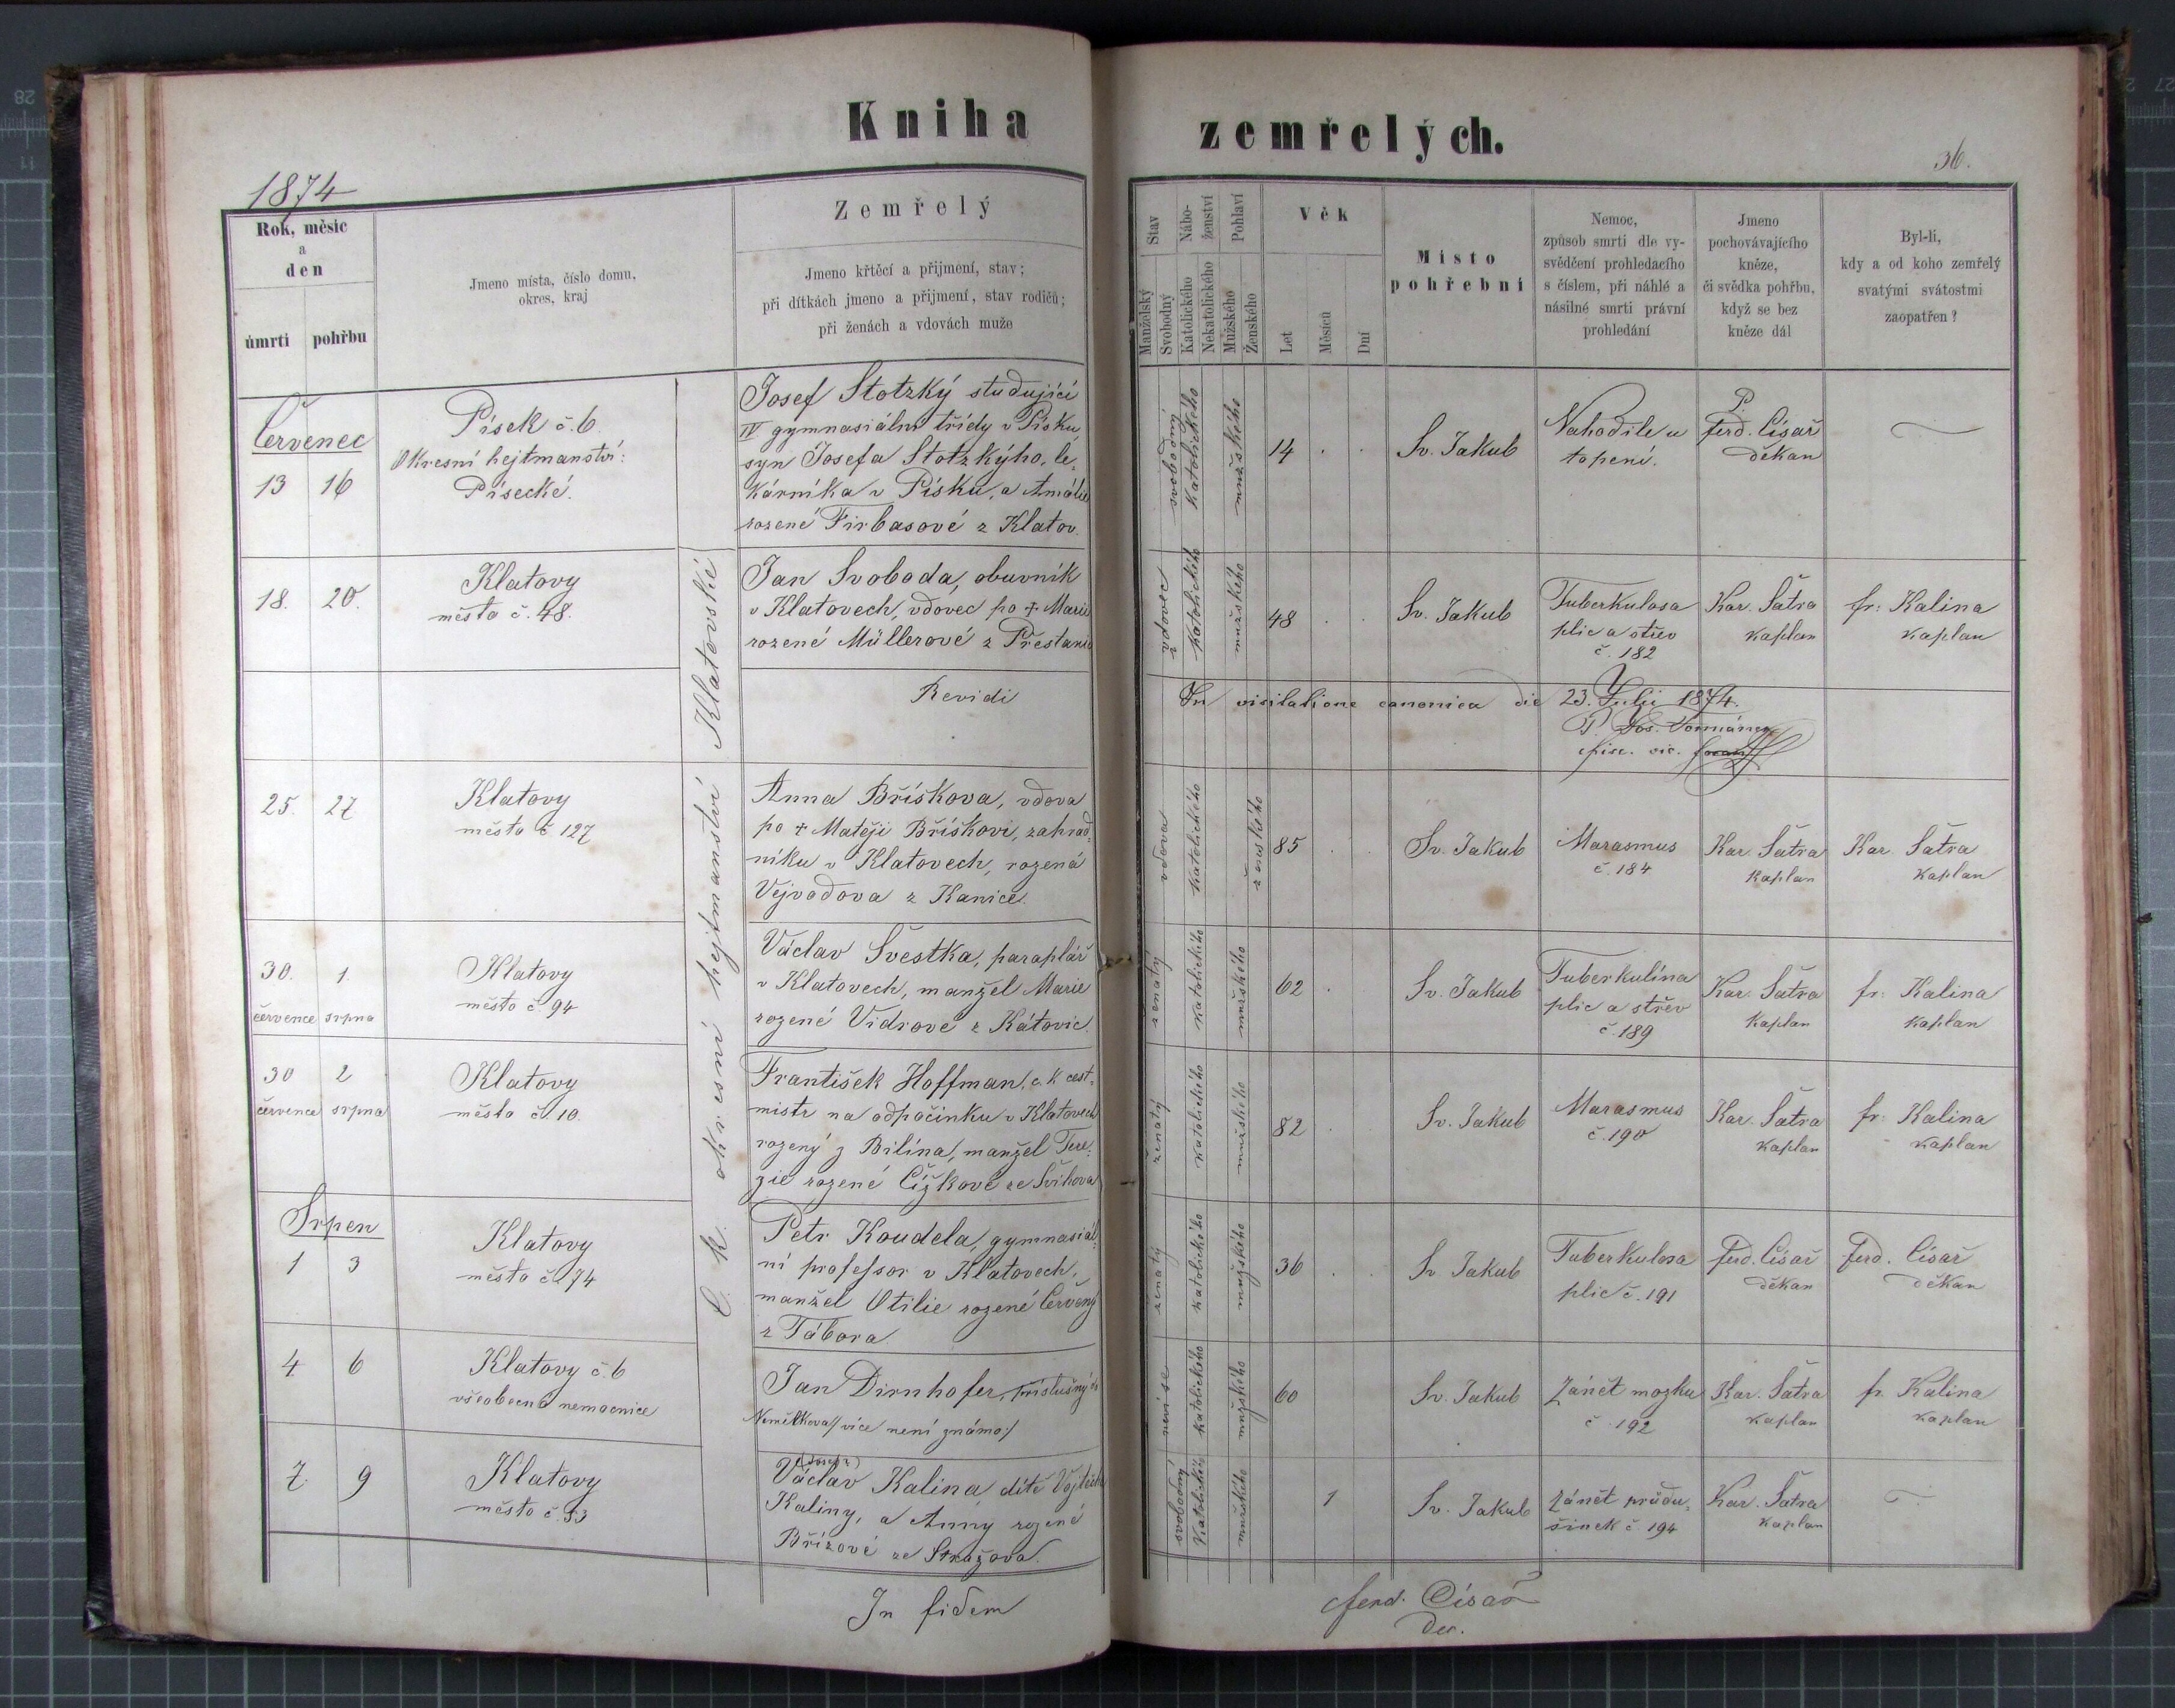 Kniha zemřelých.
36.
1874
Rok, měsíc
a
den
úmrtí
pohřbu
Jmeno místa, číslo domu,
okres, kraj
Zemřelý
Jmeno křtěcí a přijmení, stav;
při dítkách jmeno a přijmení, stav rodičů;
při ženách a vdovách muže
Stav
Manželský
Svobodný
Nábo-
ženství
Katolického
Nekatolického
Pohlaví
Mužského
Ženského
Věk
Let
Měsíců
Dní
Místo
pohřební
Nemoc,
způsob smrti dle vy-
svědčení prohledacího
s číslem, při náhlé a
násilné smrti právní
prohledání
Jmeno
pochovávajícího
kněze,
či svědka pohřbu,
když se bez
kněze dál
Byl-li,
kdy a od koho zemřelý
svatými svátostmi
zaopatřen?
C. k. okresní hejtmanství Klatovské
Červenec
13 16
Písek č. 6
Okresní hejtmanství:
Písecké.
Josef Stotzký studující
IV gymnasiální třídy v Písku
syn Josefa Stotzkýho, lé,
kárníka v Písku, a Amálie
rozené Firbasové z Klatov.
svobodný
katolického
mužského
14
Sv. Jakub
Nahodile u
topení.
P.
Ferd. Císař
děkan
18. 20.
Klatovy
město č. 48.
Jan Svoboda, obuvník
v Klatovech, vdovec po + Marii
rozené Müllerové z
vdovec
katolického
mužského
48
Sv. Jakub
Tuberkulosa
plic a střev
č. 182
Kar. Šatra
kaplan
fr: Kalina
kaplan
Revidi In visitatione canonica die 23. Julii 1874.
P. Jos.
episc. vic.
25. 27
Klatovy
město č 127
Anna Bříškova, vdova
po + Matěji Bříškovi, zahrad,
níku v Klatovech, rozená
Vejvodova z Kanice.
vdova
katolického
ženského
85
Sv. Jakub
Marasmus
č. 184
Kar. Šatra
kaplan
Kar. Šatra
kaplan
30. 1.
července srpna
Klatovy
město č 94
Václav Švestka, paraplář
v Klatovech, manžel Marie
rozené Vidrové z Kátovic.
ženatý
katolického
mužského
62
Sv. Jakub
Tuberkulína
plic a střev
č. 189
Kar. Šatra
kaplan
fr: Kalina
kaplan
30 2
července srpna
Klatovy
město č. 10.
František Hoffman, c. k cest,
mistr na odpočinku v Klatovech
rozený z Bilína, manžel Tere,
zie rozené Čížkové ze Švihova
ženatý
katolického
mužského
82
Sv. Jakub
Marasmus
č. 190
Kar. Šatra
kaplan
fr: Kalina
kaplan
Srpen
1 3
Klatovy
město č. 74
Petr Koudela, gymnasiál,
ní professor v Klatovech,
manžel Otilie rozené Červený
z Tábora.
ženatý
katolického
mužského
36
Sv Jakub
Tuberkulosa
plic č. 191
Ferd. Císař
děkan
Ferd. Císař
děkan
4 6
Klatovy č. 6
všeobecná nemocnice
Jan Dirnhofer, příslušný
/více není známo:/
neví se
katolického
mužského
60
Sv. Jakub
Zánět mozku
č. 192
Kar. Šatra
kaplan
fr. Kalina
kaplan
7. 9
Klatovy
město č. 53
Václav Kalina dítě Vojtěcha
Kaliny, a Anny rozené
Břízové ze Strážova.
svobodný
katolického
mužského
1
Sv. Jakub
Zánět průdu,
šinek č. 194
Kar. Šatra
kaplan
In fidem Ferd. Císař